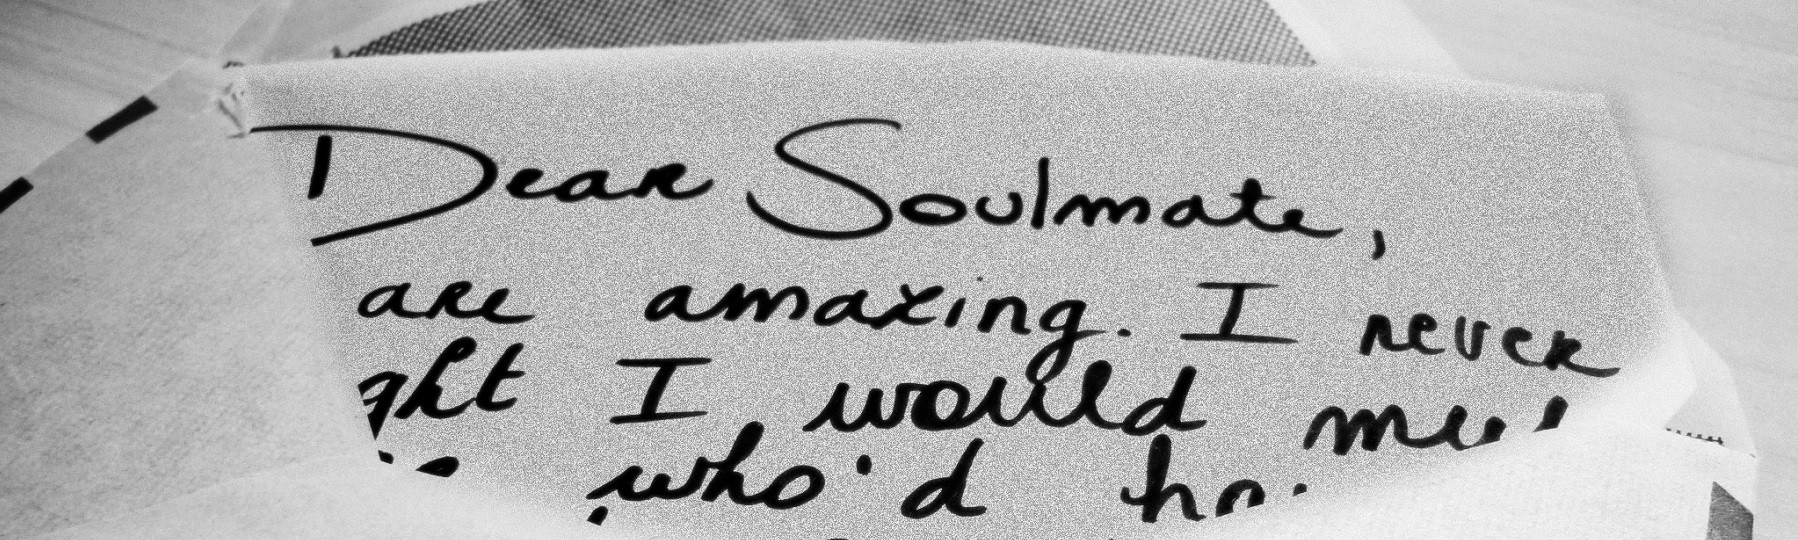 Dear Soulmate,
are amazing. I never
I would
who'd